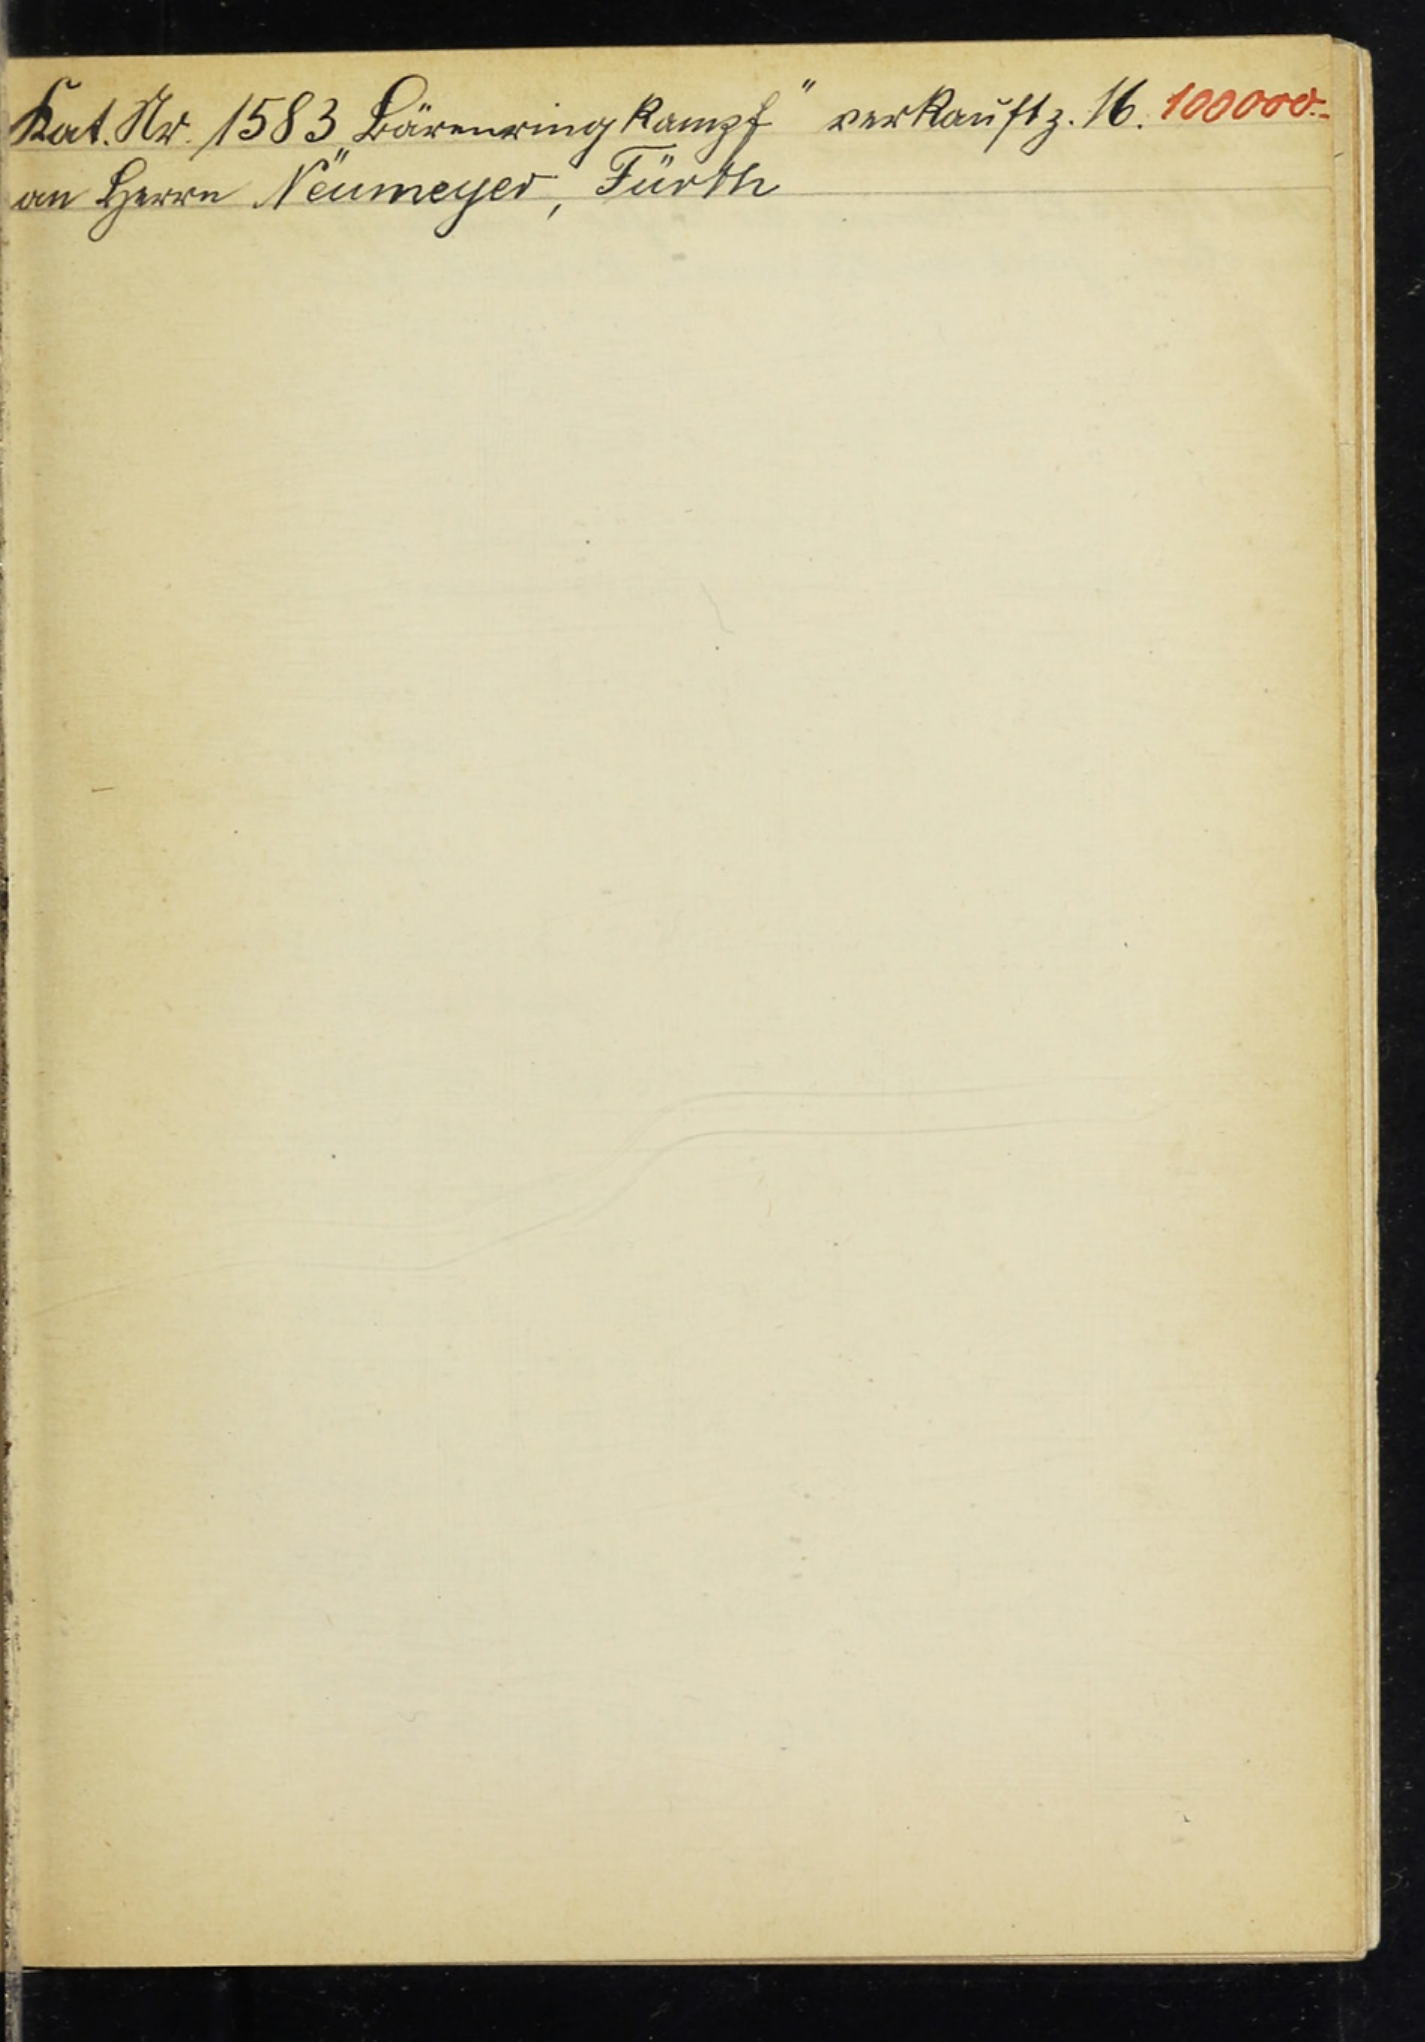 Kat. Nr. 1583 „Bärenringkampf“ verkauft z. M. 100000.-
an Herrn Neumeyer, Fürth